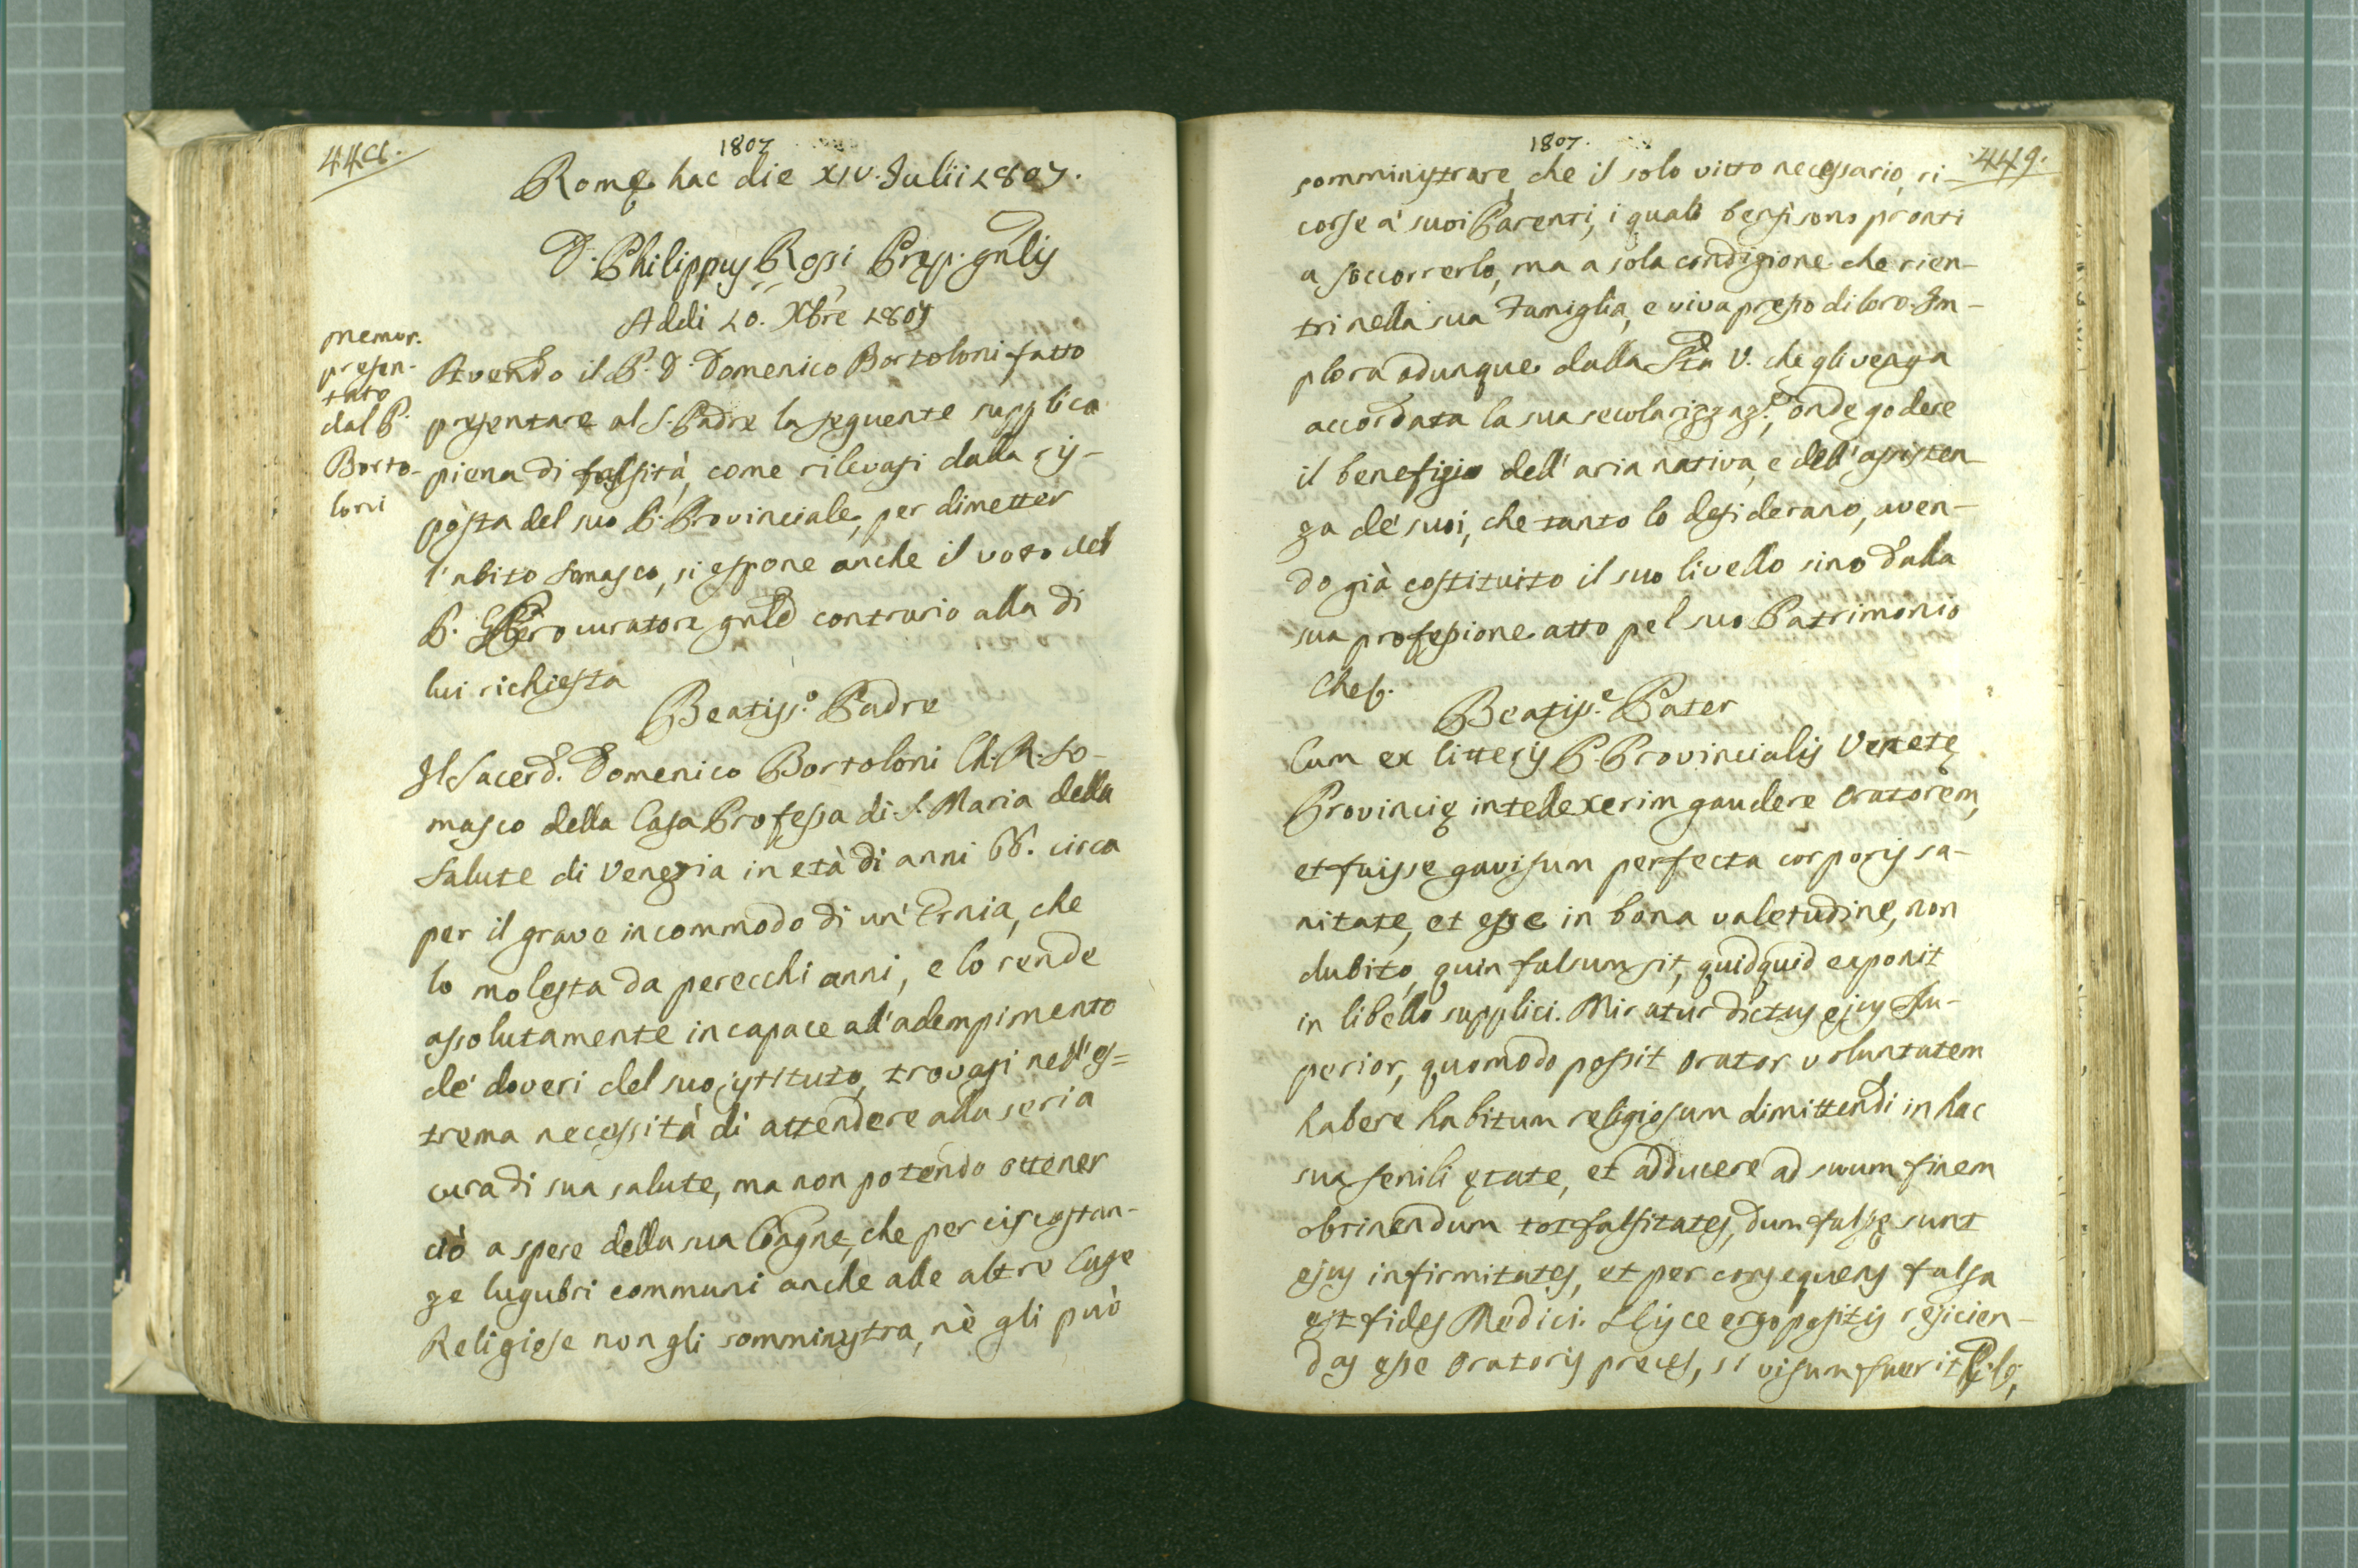 448.
1807
Romę hac die XIV. Julii 1807.
D. Philippus Rossi Pręp. gnlis
Addi 10. Xbre 1807
Memor.
presen-
tato
dal P.
Borto-
loni
Avendo il P. D. Domenico Bortoloni fatto
presentare al S. Padre la seguente supplica
piena di falsità, come rilevasi dalla ris-
posta del suo P. Provinciale, per dimetter
l'abito Somasco, si espone anche il voto del
P. Procuratore gnle contrario alla di
lui richiesta
Beatiss.o Padre
Il Sacerd. Domenico Bortoloni Ch. R. So-
masco della Casa Professa di S. Maria della
Salute di Venezia in età di anni 66. circa
per il grave incommodo di un' Ernia, che
lo molesta da perecchi anni, e lo rende
assolutamente incapace all'adempimento
de' doveri del suo istituto, trovasi nell'es=
trema necessità di attendere alla seria
cura di sua salute, ma non potendo ottener
ciò a spese della sua Congne, che per circostan-
ze lugubri communi anche alle altre Case
Religiose non gli somministra, nè gli può
1807.
449.
somministrare, che il solo vitto necessario, ri-
corse a' suoi Parenti, i quali bensì sono pronti
a soccorrerlo, ma a sola condizione che rien-
tri nella sua Famiglia, e viva presso di loro. Im-
plora adunque dalla Stà V. che gli venga
accordata la sua secolarizzaz.e, onde godere
il benefizio dell' aria nativa, e dell' assisten-
za de' suoi, che tanto lo desiderano, aven-
do già costituito il suo livello sino dalla
sua professione atto pel suo Patrimonio
Che &.
Beatiss.e Pater
Cum ex litteris P. Provincialis Venetę
Provincię intellexerim gaudere Oratorem,
et fuisse gavisum perfecta corporis sa-
nitate, et esse in bona valetudine, non
dubito, quin falsum sit, quidquid exponit
in libello supplici. Miratur dictus ejus Su-
perior, quomodo possit Orator voluntatem
habere habitum religiosum dimittendi in hac
sua senili ętate, et adducere ad suum finem
obtinendum tot falsitates, dum falsę sunt
ejus infirmitates, et per consequens falsa
est fides Medici. Hisce ergo positis rejicien-
das esse Oratoris preces, si visum fuerit